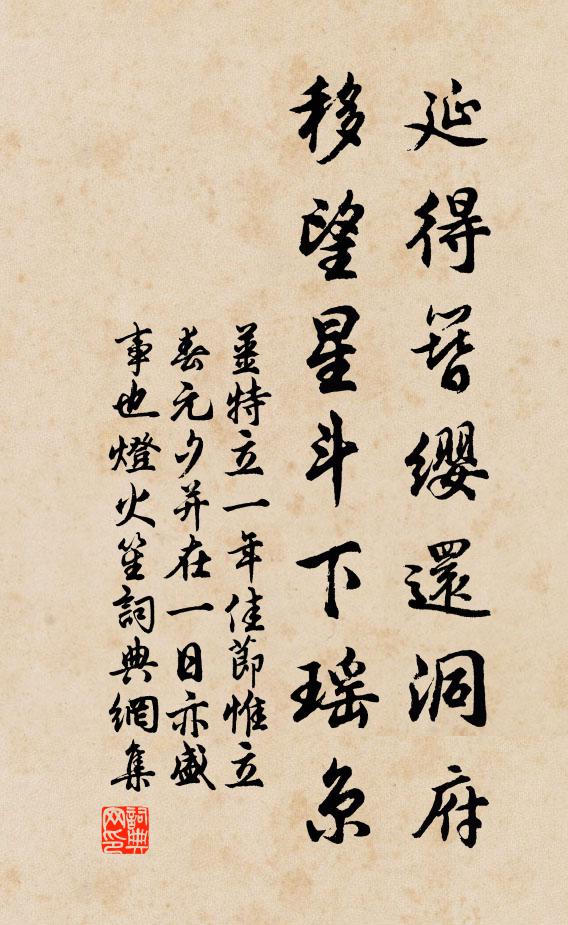 延得簪纓還洞府
移望星斗下瑤京
姜特立一年佳節惟立
春元夕并在一日亦盛
事也燈火笙詞典網集
詞典網印